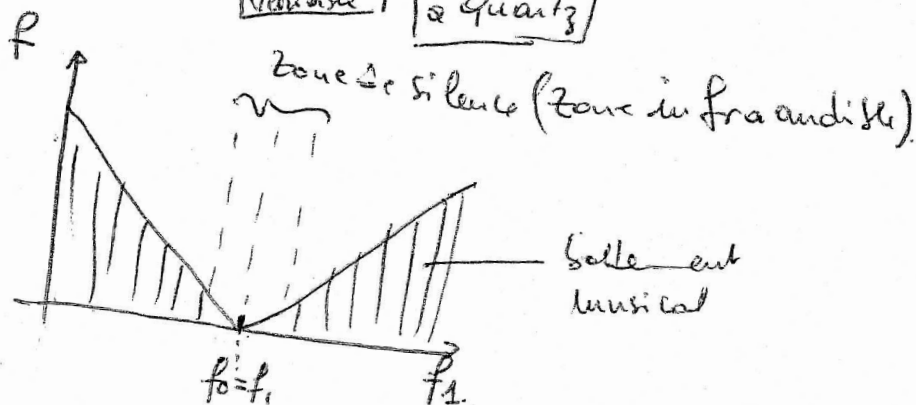 à quartz
f
zone de silence (zone infraaudible).
battement
musical
f0=f1
f1.